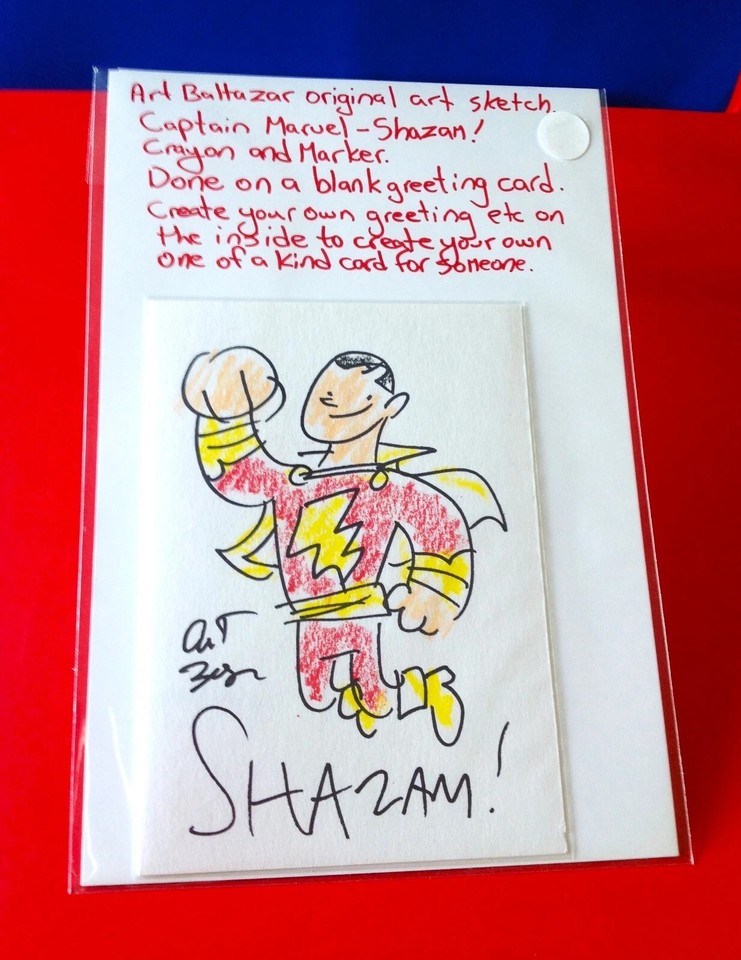 Art Baltazar original art sketch.
Captain Marvel - Shazam!
Crayon and Marker.
Done on a blank greeting card.
Create your own greeting etc on
the inside to create your own
one of a kind card for someone.
Art
SHAZAM!